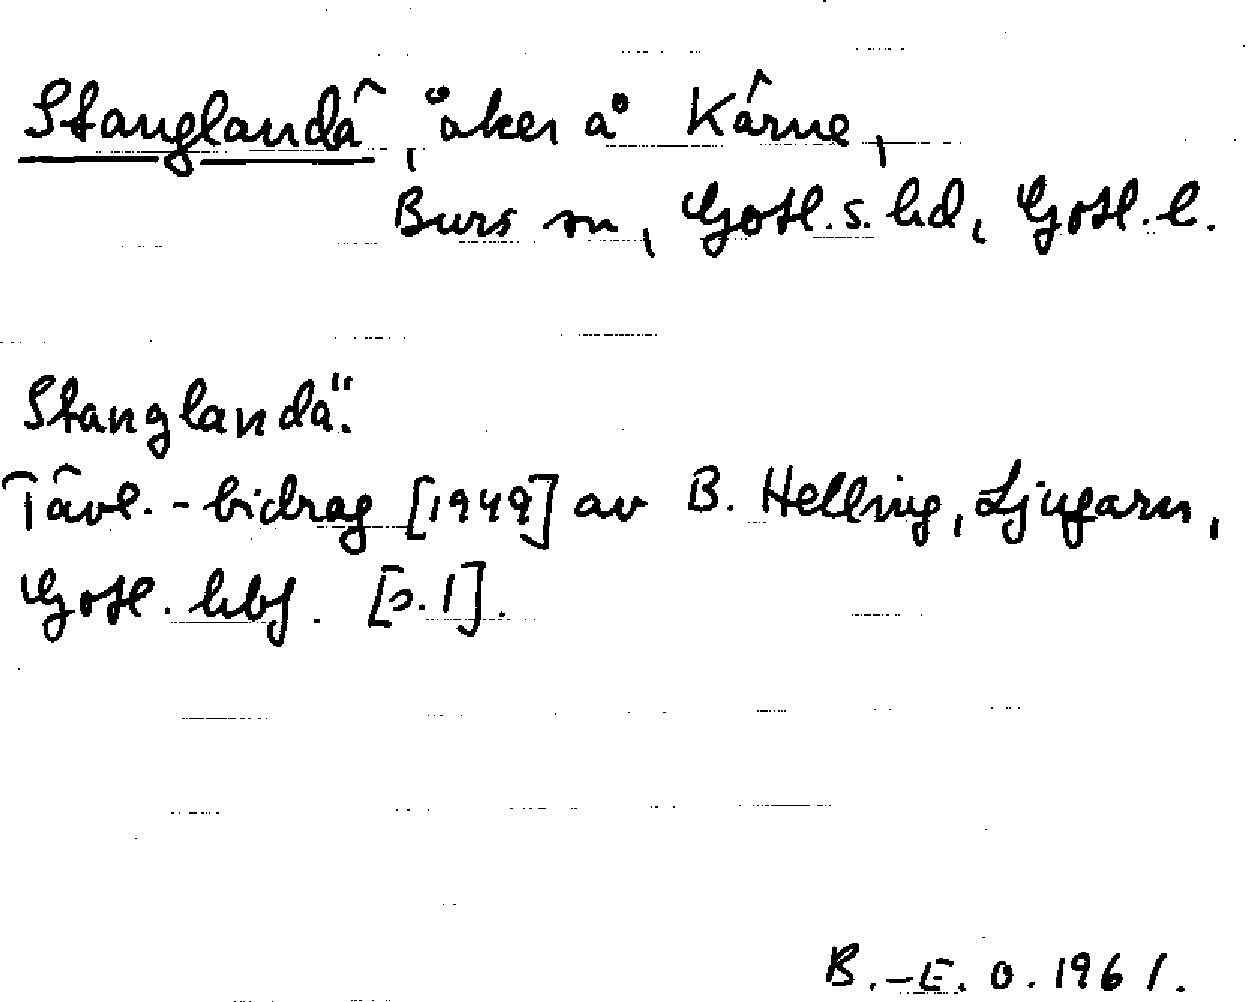 Stanglandâ, åker å Kärne,
Burs sn, Gotl. s. hd, Gotl. l.
Stanglandä.
Tävl.-bidrag [1949] av B. Hellsing, Ljugarn,
Gotl. hbf. [s. 1].
B.-E. O. 1961.